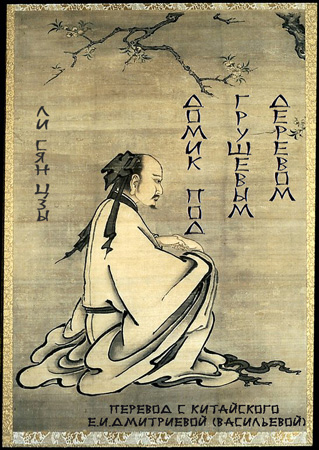 ЛИ СЯН ЦЗЫ
ДОМИК ПОД
ГРУШЕВЫМ
ДЕРЕВОМ
ПЕРЕВОД С КИТАЙСКОГО
Е.И.ДМИТРИЕВОЙ (ВАСИЛЬЕВОЙ)